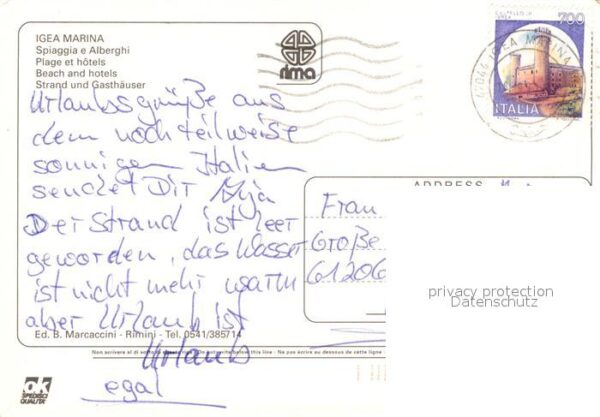 IGEA MARINA
Spiaggia e Alberghi
Plage et hôtels
Beach and hotels
Strand und Gasthäuser
rima
700
47044 IGEA MARINA
ITALIA
Urlaubsgrüße aus
dem noch teilweise
sonnigen Italien
sendet Dir
Der Strand ist leer
geworden, das Wasser
ist nicht mehr warm
aber Urlaub ist
Urlaub
egal
ADDRESS
Frau
Große
61206
privacy protection
Datenschutz
Ed. B. Marcaccini - Rimini - Tel. 0541/385714
Non scrivere al di sotto write below this line - Ne pas écrire au dessous de cette ligne
ok
SPEDISCI
QUALITA'